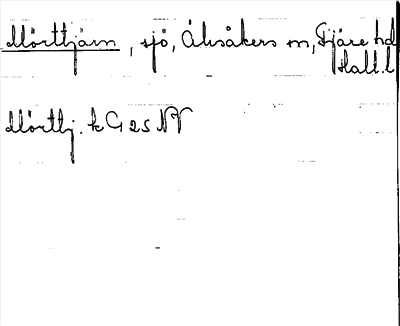 Mörttjärn, sjö, Älvsåkers sn, Fjäre hd
Hall. l
Mörttj. k G 25 NV